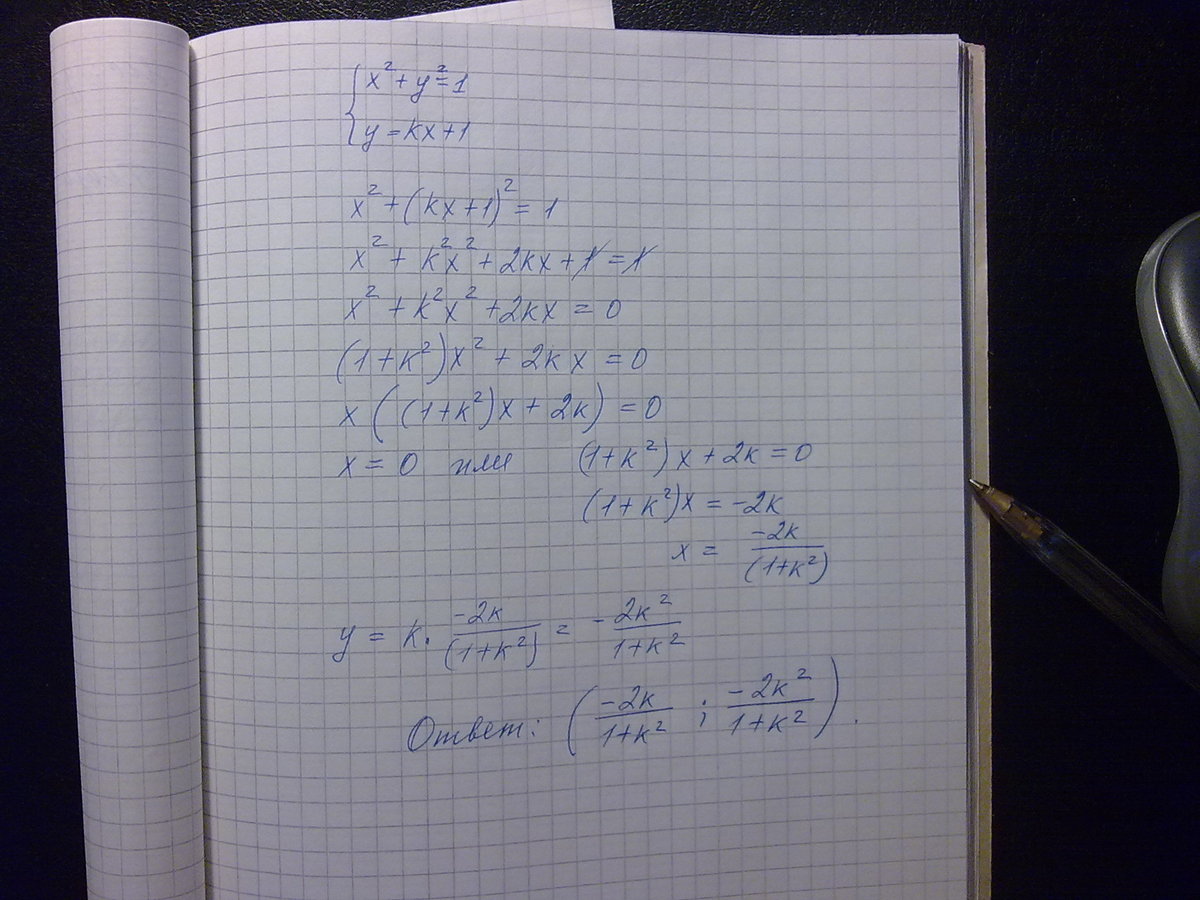 { x² + y² = 1
y = kx + 1
x² + (kx + 1)² = 1
x² + k²x² + 2kx + 1 = 1
x² + k²x² + 2kx = 0
(1 + k²)x² + 2kx = 0
x((1 + k²)x + 2k) = 0
x = 0 или (1 + k²)x + 2k = 0
(1 + k²)x = -2k
x = -2k/(1 + k²)
y = k · -2k/(1 + k²) = - 2k²/1 + k²
Ответ: (-2k/1 + k² ; -2k²/1 + k²).